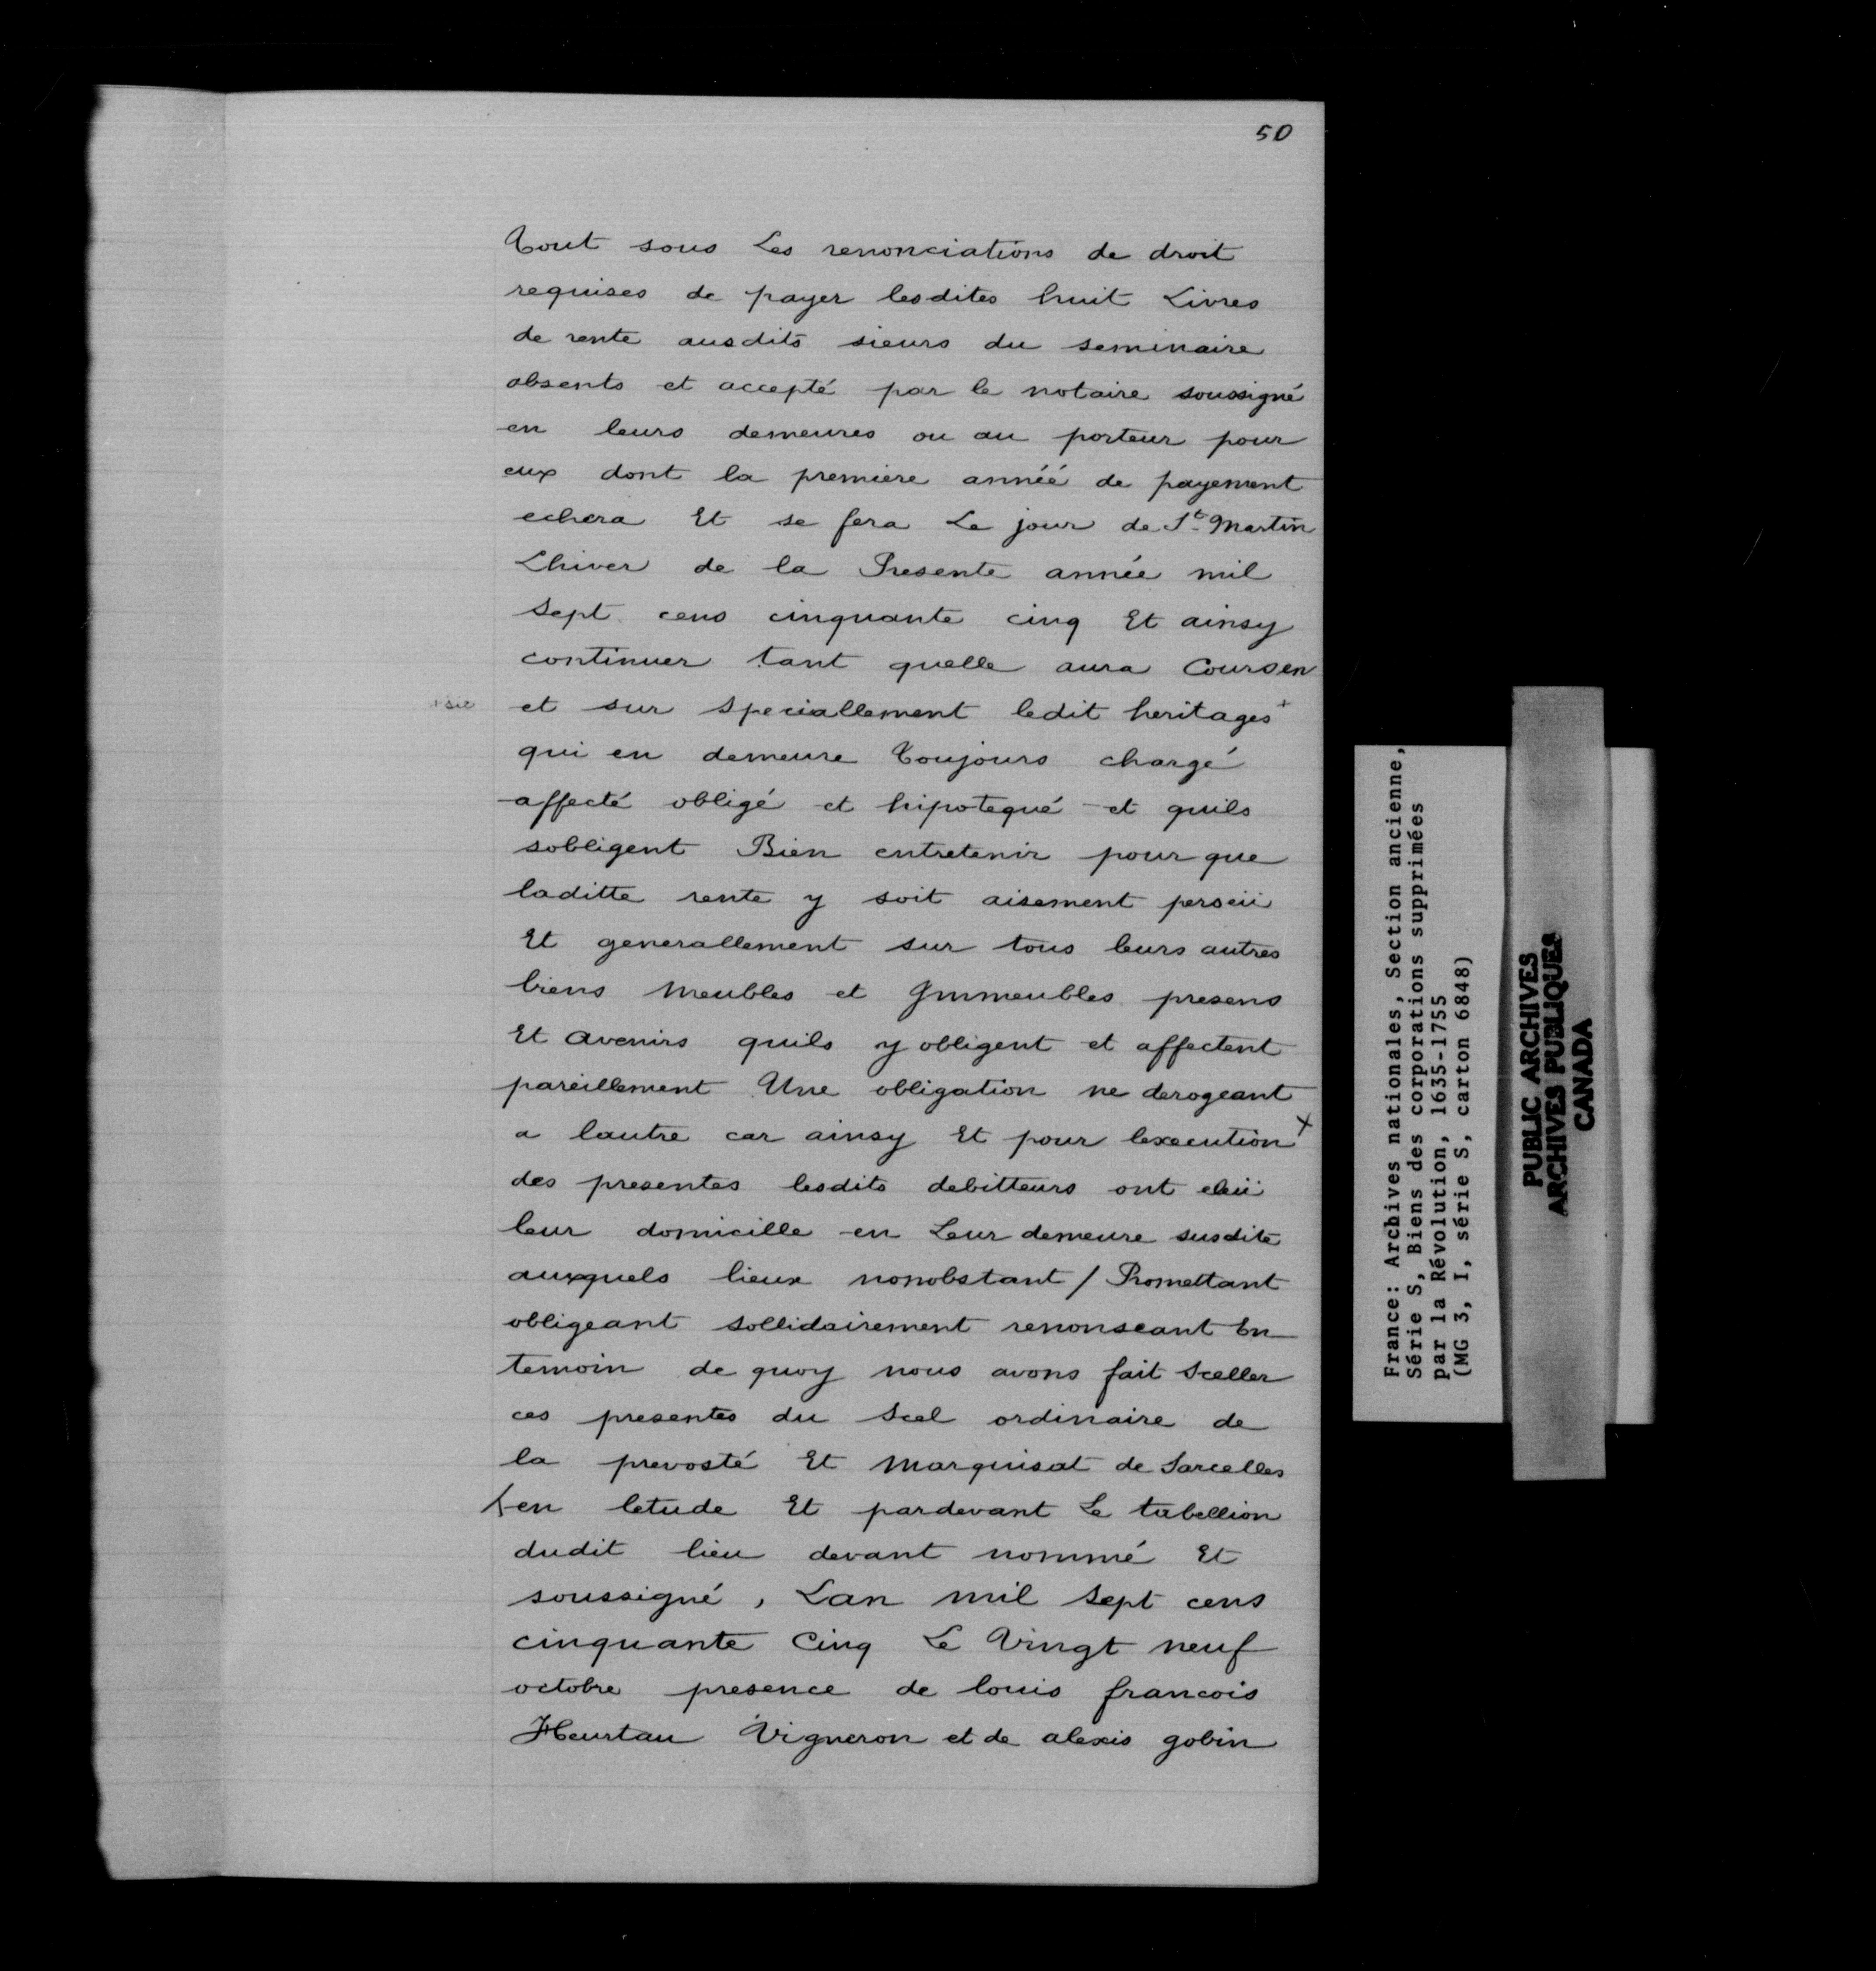 50
Tout sous Les renonciations de droit
requises de payer lesdites huit Livres
de rente ausdits sieurs du seminaire
absents et accepté par le notaire soussigné
en leurs demeures ou au porteur pour
eux dont la premiere annéé de payement
echera Et se fera Le jour de St. Martin
Lhiver de la Presente année mil
Sept cens cinquante cinq Et ainsy
continuer tant quelle aura Cours en
+ sic
et sur Speciallement ledit heritages +
qui en demeure Toujours chargé
affecté obligé et hipotequé et quils
sobligent Bien entretenir pour que
laditte rente y soit aisement perseüi
Et generallement sur tous leurs autres
biens Meubles et Immeubles presens
Et avenirs quils y obligent et affectent
pareillement Une obligation ne derogeant
a lautre car ainsy Et pour lexecution X
des presentes lesdits debitteurs ont eleü
leur domicille en Leur demeure susdite
auxquels lieux nonobstant / Promettant
obligeant sollidairement renonseant En
temoin de quoy nous avons fait Sceller
ces presentes du Scel ordinaire de
la prevosté Et Marquisat de Sarcelles
en letude Et pardevant Le tabellion
dudit lieu devant nommé Et
soussigné, Lan mil Sept cens
cinquante Cinq Le Vingt neuf
octobre presence de louis francois
Heurtau Vigneron et de alexis gobin
France: Archives nationales, Section ancienne,
Série S, Biens des corporations supprimées
par la Révolution, 1635-1755
(MG 3, I, série S, carton 6848)
PUBLIC ARCHIVES
ARCHIVES PUBLIQUES
CANADA